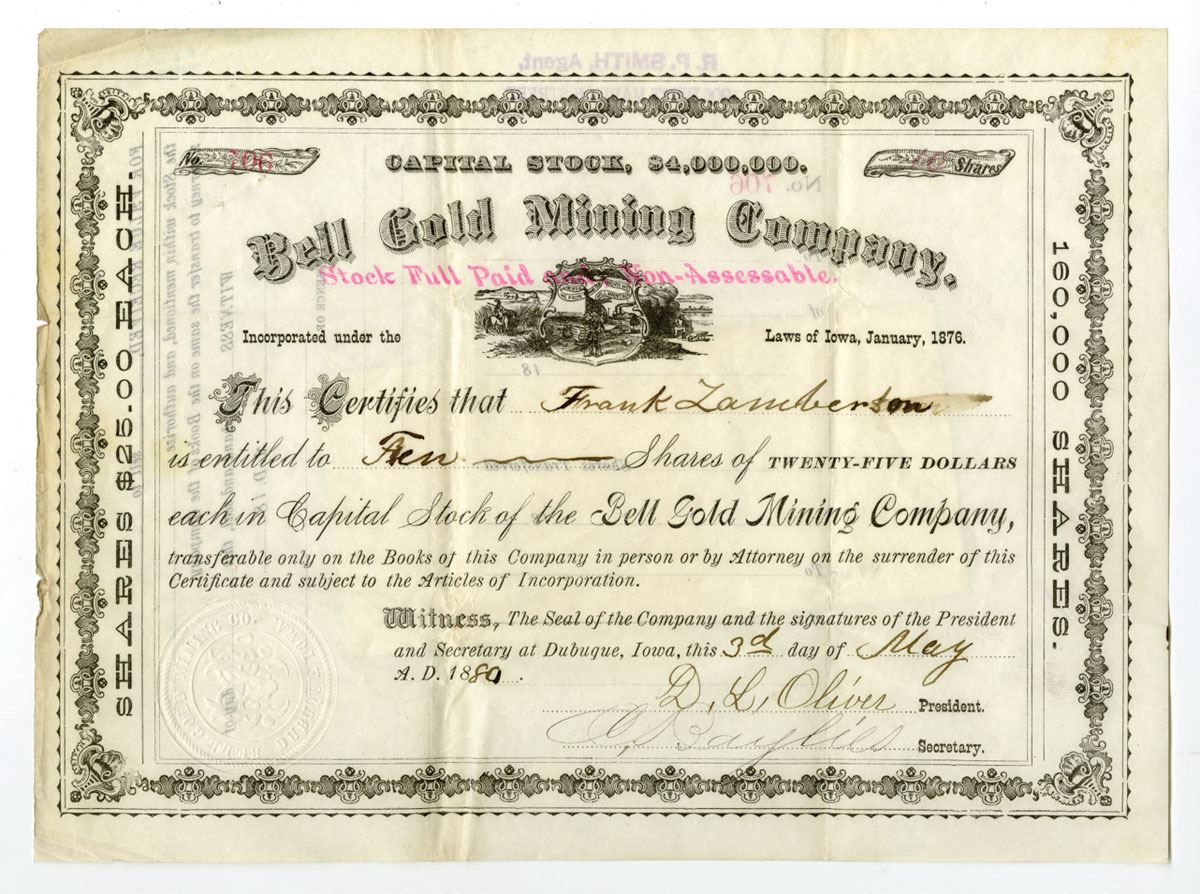 R. P. SMITH, Agent,
No. 706
CAPITAL STOCK, $4,000,000.
10 Shares
Bell Gold Mining Company.
Stock Full Paid and Non-Assessable.
Incorporated under the Laws of Iowa, January, 1876.
This Certifies that Frank Lamberson
is entitled to Ten Shares of TWENTY-FIVE DOLLARS
each in Capital Stock of the Bell Gold Mining Company,
transferable only on the Books of this Company in person or by Attorney on the surrender of this
Certificate and subject to the Articles of Incorporation.
Witness, The Seal of the Company and the signatures of the President
and Secretary at Dubuque, Iowa, this 3d day of May
A. D. 1880.
D. L. Oliver President.
C. Baylies Secretary.
SHARES $25.00 EACH.
160,000 SHARES.